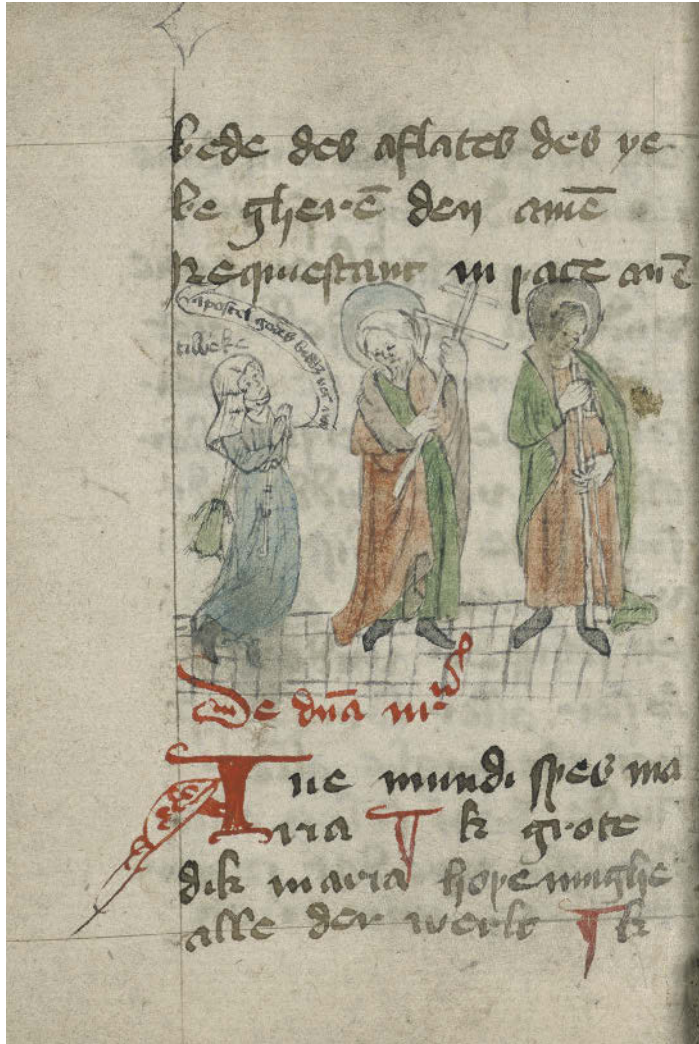 bede des aflates des ye
ke gherē den amē
Requiescant in pace amē
apostel godes
De dn̄a nr̄a
Aue mundi spes ma
ria Ik grote
dik maria hopeninghe
alle der werlt Ik